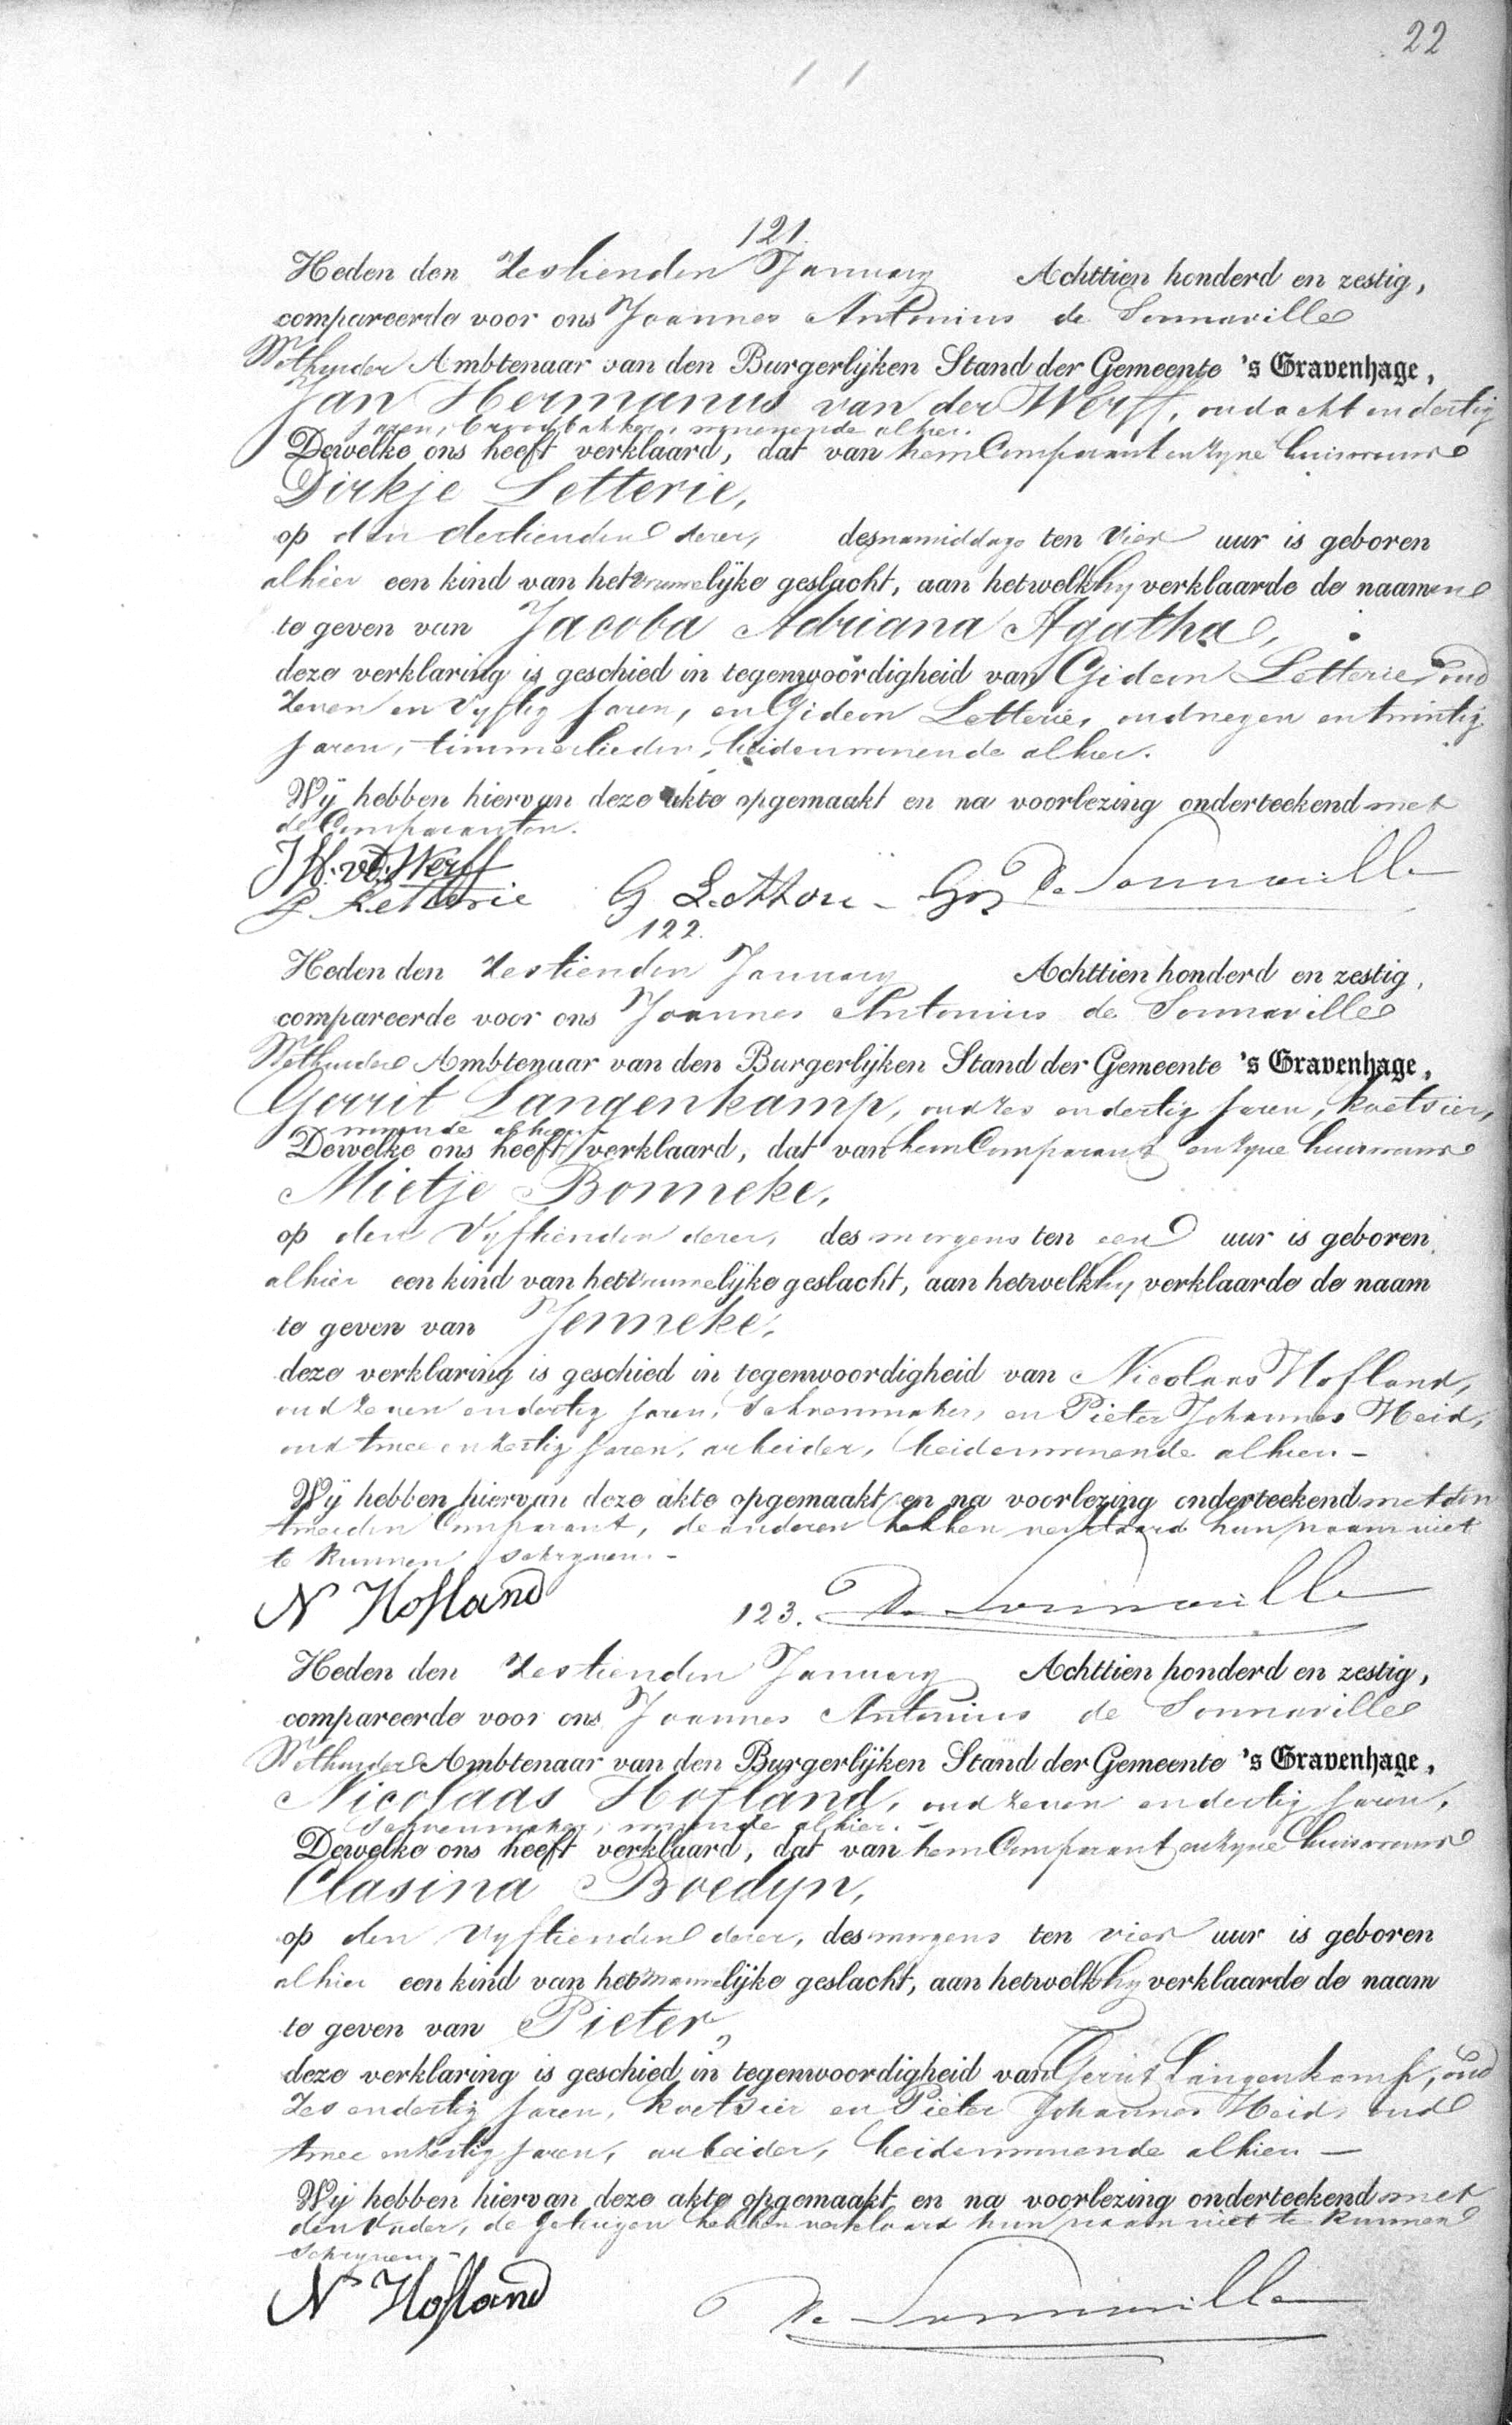 22
121.
Heden den Zestienden January Achttien honderd en zestig,
compareerde voor ons Joannes Antonius de Sonnaville
Wethouder Ambtenaar van den Burgerlijken Stand der Gemeente 's Gravenhage,
Jan Hermanus van der Werff, oud acht en dertig
jaren, broodbakker, wonende alhier.
Dewelke ons heeft verklaard, dat van hem Comparant en zyne huisvrouw
Dirkje Letterie,
op den dertienden dezer, des namiddags ten vier uur is geboren
alhier een kind van het vrouwelijke geslacht, aan hetwelk hy verklaarde de naamen
te geven van Jacoba Adriana Agatha,
deze verklaring is geschied in tegenwoordigheid van Gideon Letterie, oud
Zeven en Vyftig jaren, en Gideon Letterie, oud negen en twintig
jaren, timmerlieden, beiden wonende alhier.
Wij hebben hiervan deze akte opgemaakt en na voorlezing onderteekend met
de Comparanten.
J H. vd. Werff
G Letterie G Letterie Gz de Sonnaville
122.
Heden den Zestienden January Achttien honderd en zestig,
compareerde voor ons Joannes Antonius de Sonnaville
Wethouder Ambtenaar van den Burgerlijken Stand der Gemeente 's Gravenhage,
Gerrit Langenkamp, oud zes en dertig jaren, koetsier,
wonende alhier.
Dewelke ons heeft verklaard, dat van hem Comparant en zyne huisvrouw
Mietje Bonneke,
op den Vyftienden dezer, des morgens ten een uur is geboren
alhier een kind van het vrouwelijke geslacht, aan hetwelk hy verklaarde de naam
te geven van Jenneke,
deze verklaring is geschied in tegenwoordigheid van Nicolaas Hofland,
oud zeven en dertig jaren, schoenmaker, en Pieter Johannes Heid,
oud twee en veertig jaren, arbeider, beiden wonende alhier. -
Wij hebben hiervan deze akte opgemaakt en na voorlezing onderteekend met den
tweeden Comparant, de anderen hebben verklaard hun naam niet
te kunnen schryven. -
N Hofland de Sonnaville
123.
Heden den Zestienden January Achttien honderd en zestig,
compareerde voor ons Joannes Antonius de Sonnaville
Wethouder Ambtenaar van den Burgerlijken Stand der Gemeente 's Gravenhage,
Nicolaas Hofland, oud zeven en dertig jaren,
schoenmaker, wonende alhier. -
Dewelke ons heeft verklaard, dat van hem Comparant en zyne huisvrouw
Clasina Boedyn,
op den Vyftienden dezer, des morgens ten vier uur is geboren
alhier een kind van het mannelijke geslacht, aan hetwelk hy verklaarde de naam
te geven van Pieter,
deze verklaring is geschied in tegenwoordigheid van Gerrit Langenkamp, oud
Zes en dertig jaren, koetsier en Pieter Johannes Heid, oud
twee en veertig jaren, arbeider, beiden wonende alhier -
Wij hebben hiervan deze akte opgemaakt en na voorlezing onderteekend met
den Vader, de getuigen hebben verklaard hun naam niet te kunnen
schryven. -
N Hofland de Sonnaville